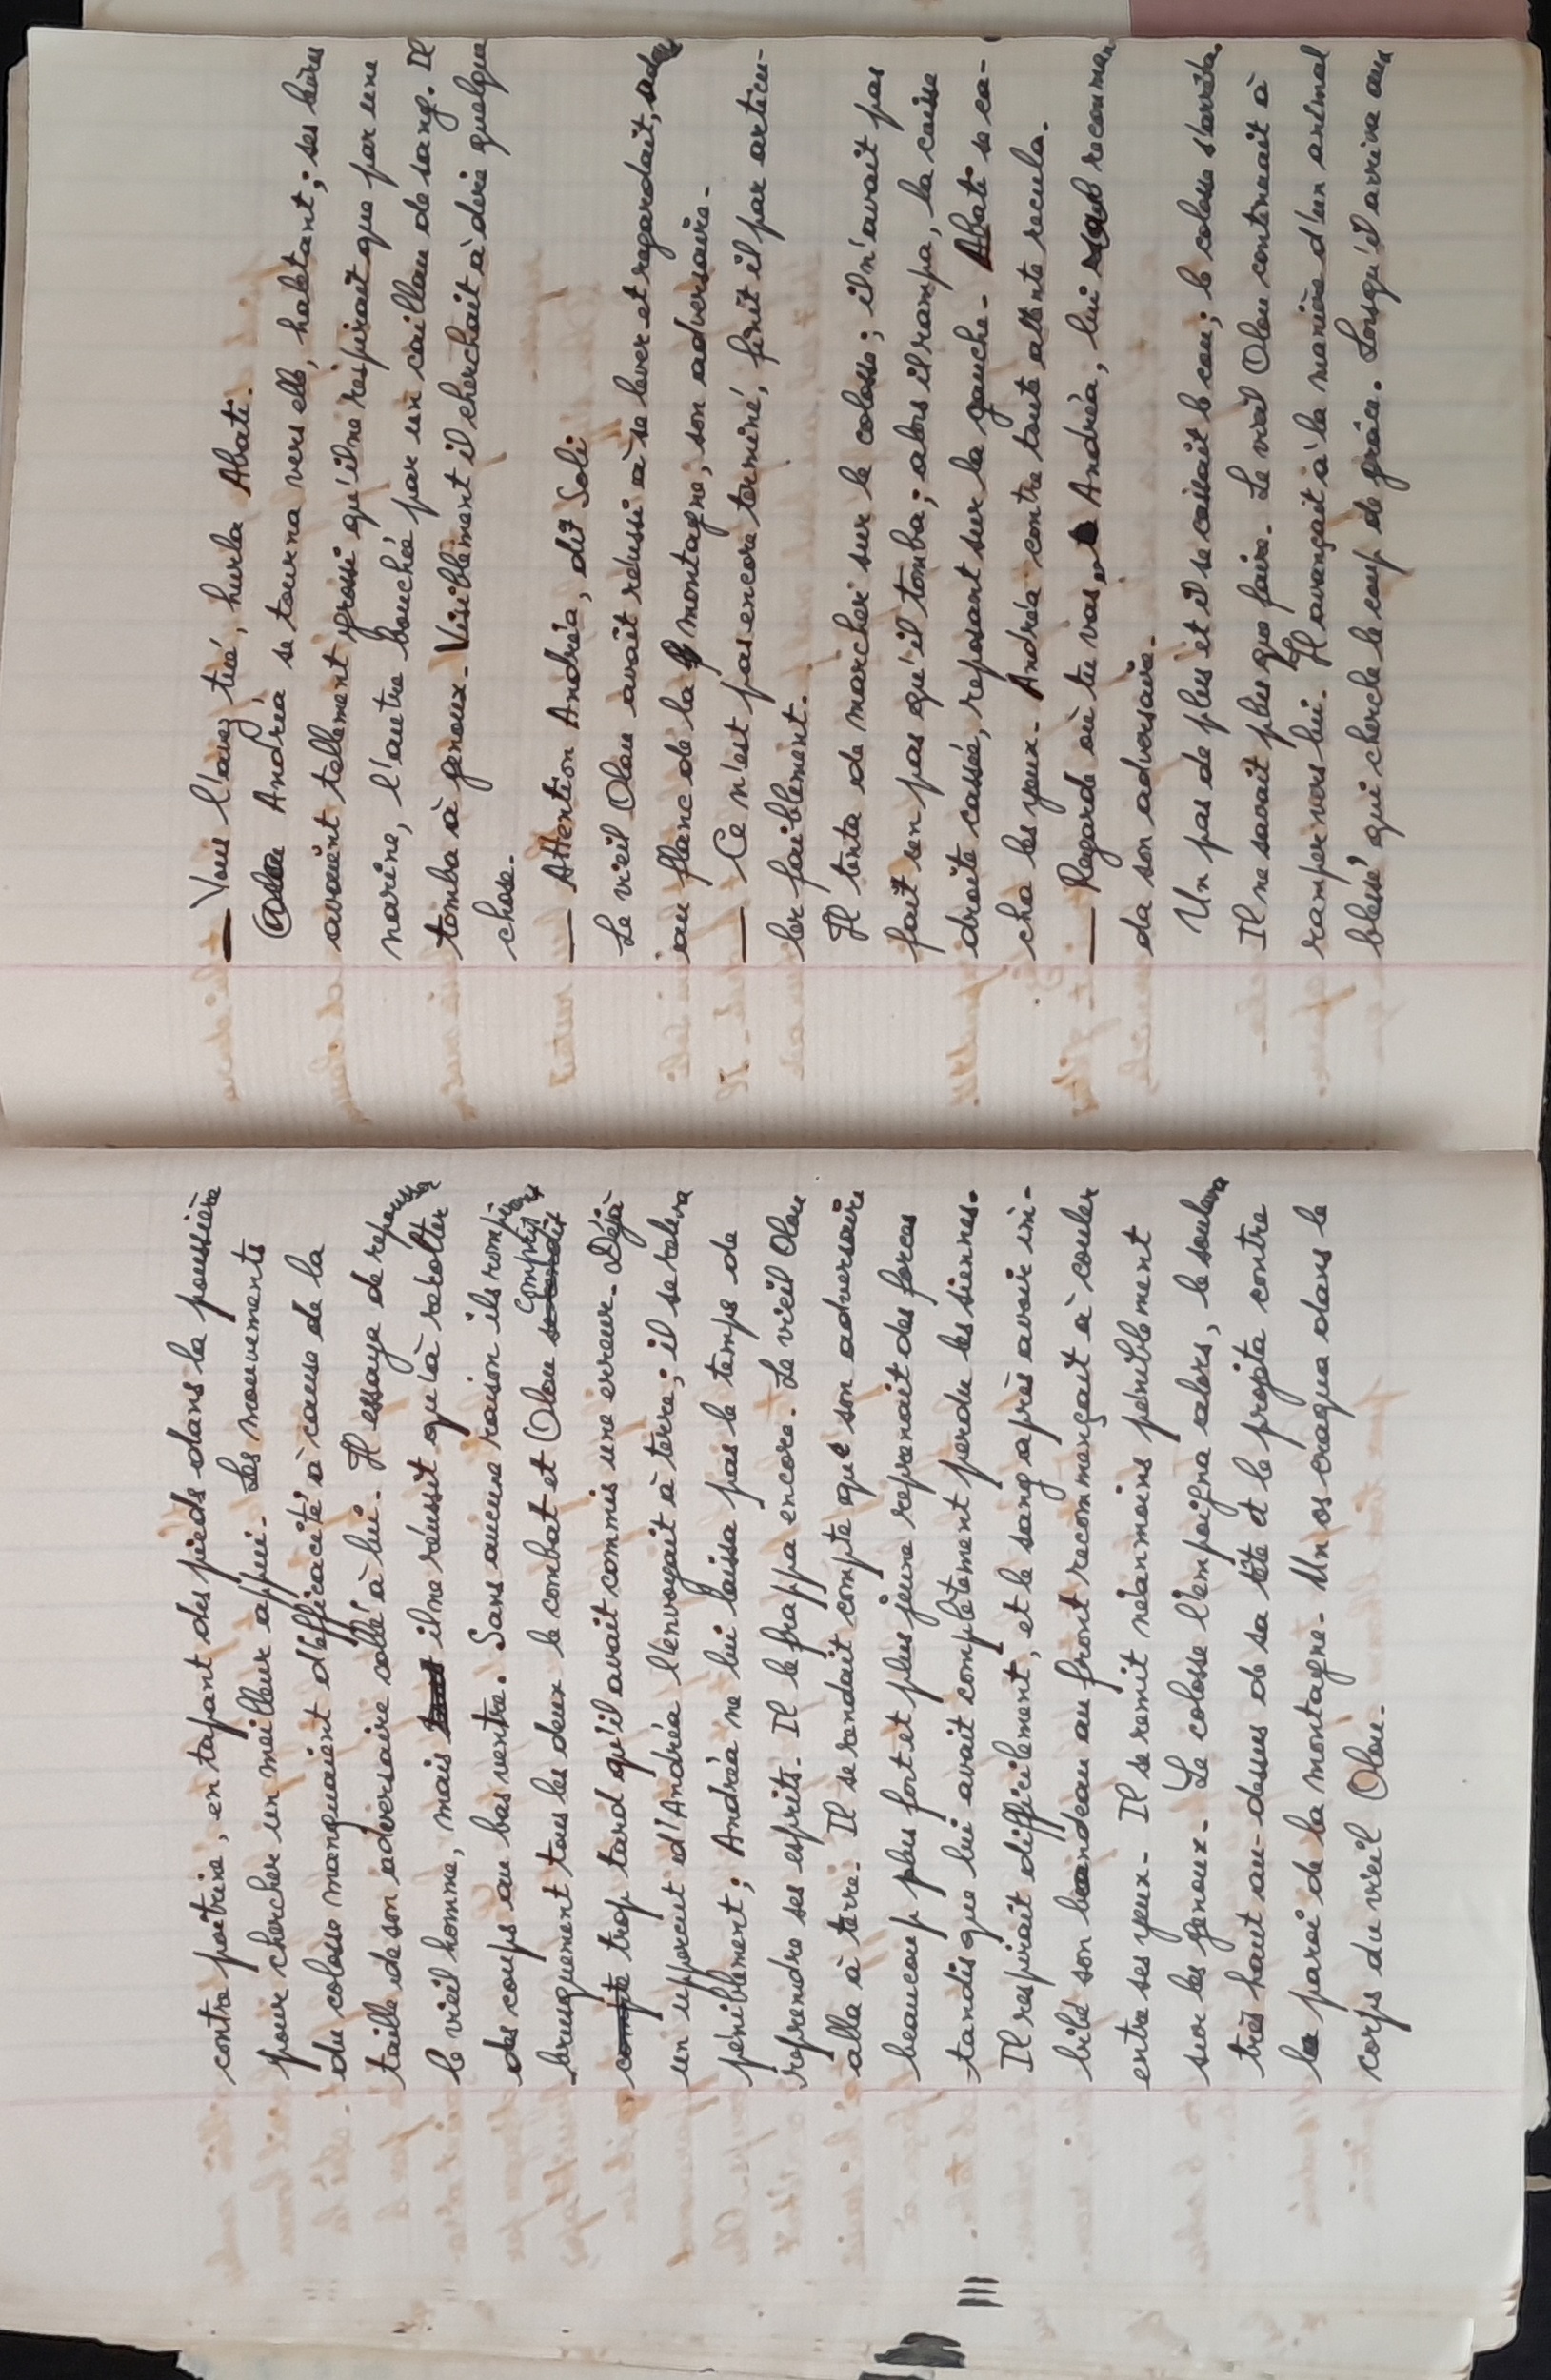 contre poitrine, en tapant des pieds dans la poussière
pour chercher un meilleur appui. Les mouvements
du colosse manquaient d'efficacité à cause de la
taille de son adversaire collé à lui. Il essaye de repousser
le vieil homme, mais il ne réussit qu'à récolter
des coups au bas ventre. Sans aucune raison ils rompirent
brusquement tous les deux le combat et Olou comprit
trop tard qu'il avait commis une erreur. Déjà
un uppercut d'Andréa l'envoyait à terre ; il se releva
péniblement ; Andréa ne lui laissa pas le temps de
reprendre ses esprits. Il le frappa encore. Le vieil Olou
alla à terre. Il se rendait compte que son adversaire
beaucoup plus fort et plus jeune reprenait des forces
tandis que lui avait complètement perdu les siennes.
Il respirait difficilement, et le sang après avoir im-
bibé son bandeau au front recommençait à couler
entre ses yeux. Il se remit néanmoins péniblement
sur les genoux. Le colosse l'empoigna alors, le souleva
très haut au-dessus de sa tête et le projeta contre
la paroi de la montagne. Un os craqua dans le
corps du vieil Olou.
— Vous l'avez tué, hurla Abati.
Andréa se tourna vers elle, haletant ; ses lèvres
avaient tellement grossi qu'il ne respirait que par une
narine, l'autre bouchée par un caillau de sang. Il
tomba à genoux. Visiblement il cherchait à dire quelque
chose.
— Attention Andréa, dit Soli
Le vieil Olou avait réussi à se lever et regardait,
au flanc de la montagne, son adversaire.
— Ce n'est pas encore terminé, finit il par articu-
ler faiblement.
Il tenta de marcher sur le colosse ; il n'avait pas
fait un pas qu'il tomba ; alors il rampa, la cuisse
droite cassée, reposant sur la gauche. Abati se ca-
cha les yeux. Andréa contre toute attente recula.
— Regarde où tu vas, Andréa, lui recomman
da son adversaire.
Un pas de plus et il se cassait le cou ; le colosse s'arrêta.
Il ne savait plus que faire. Le vieil Olou continuait à
ramper vers lui. Il avançait à la manière d'un animal
blessé qui cherche le coup de grâce. Lorsqu'il arriva aux